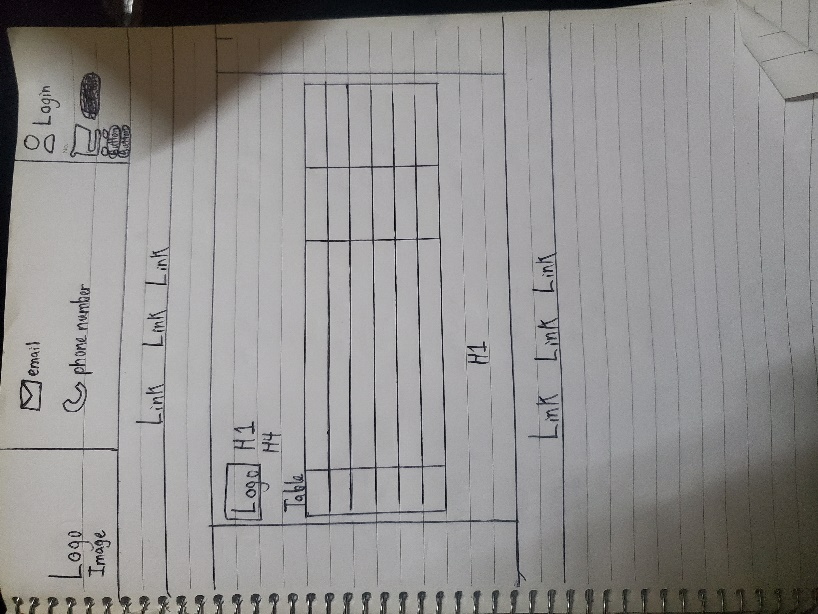 Logo
Image
email
phone number
Login
Button
Button
Link Link Link
Logo H1
H4
Table
H1
Link Link Link